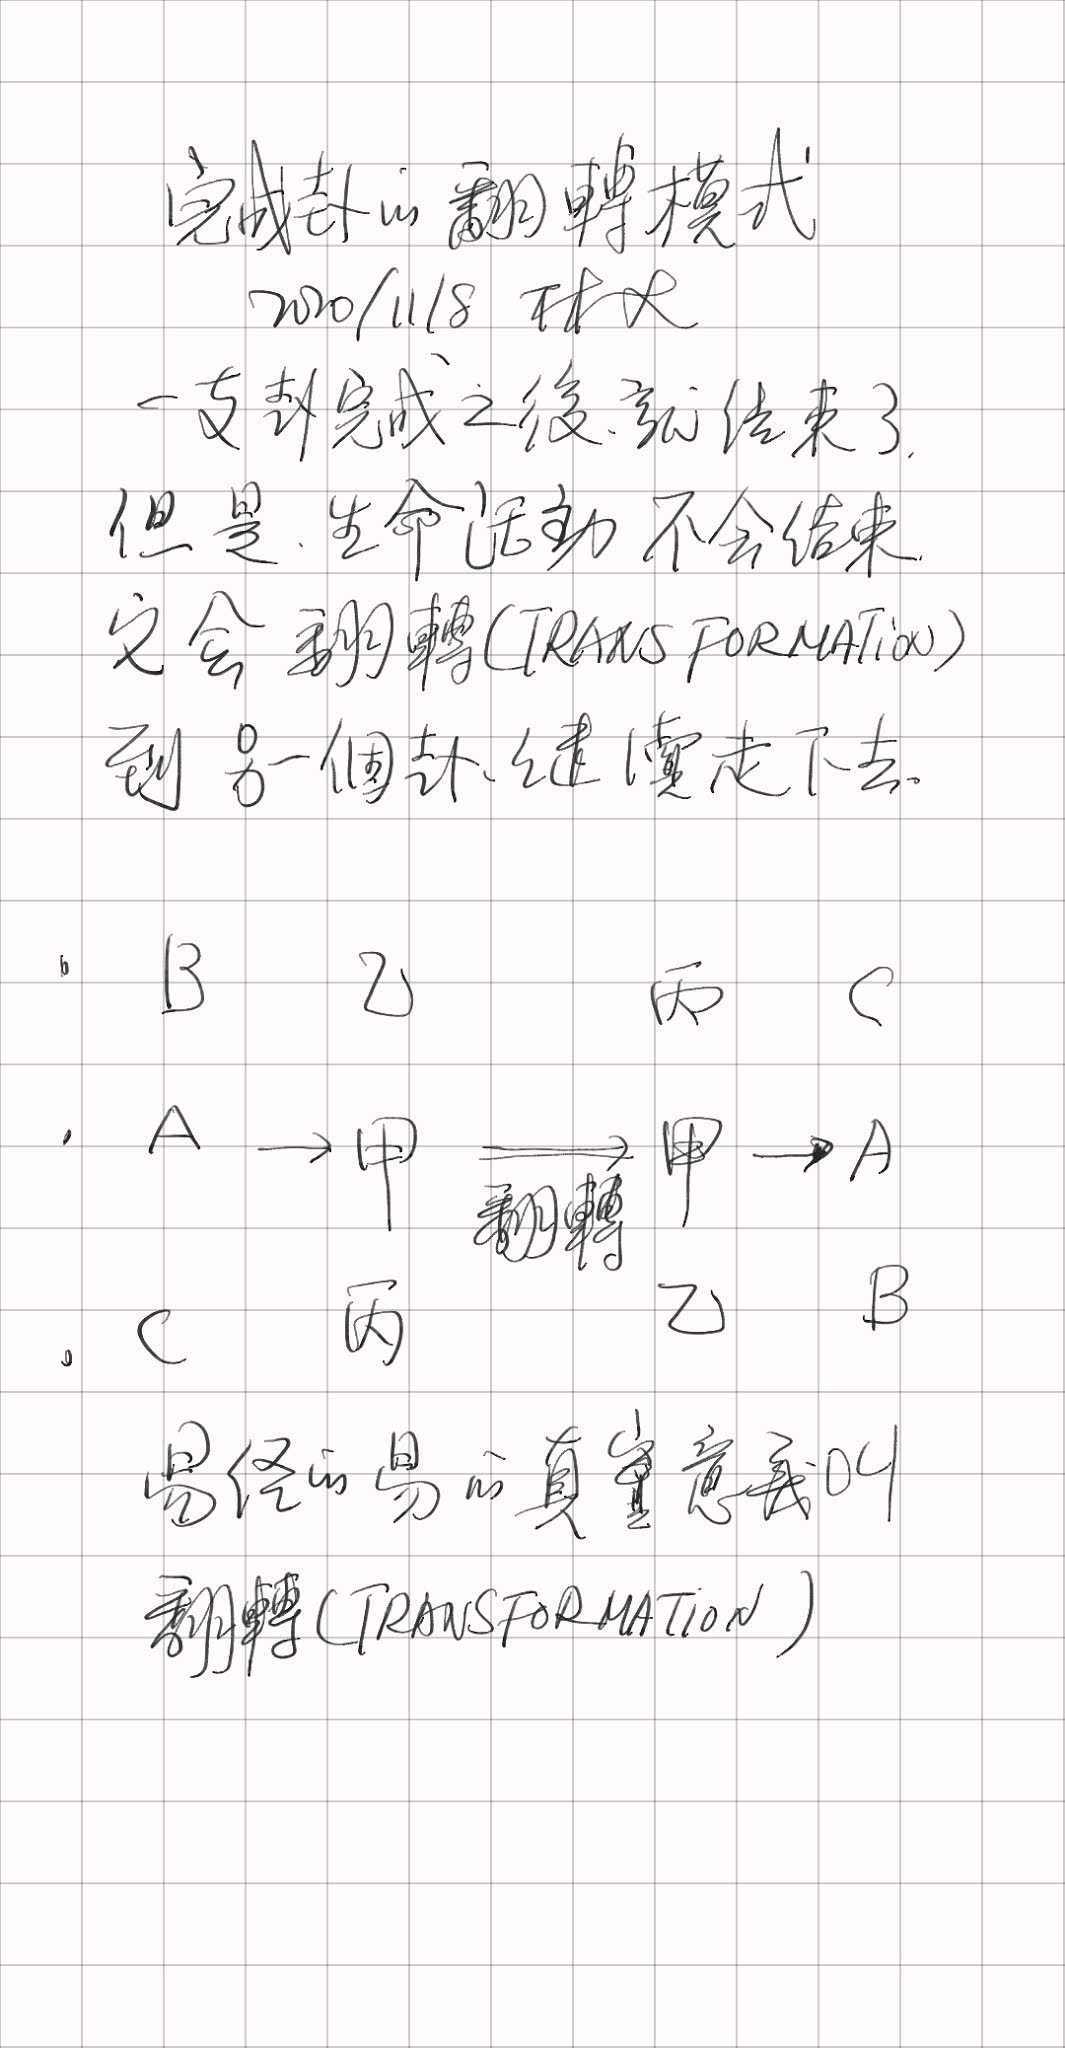 完成卦的翻轉模式
2020/11/8 林文
一支卦完成之後、就结束了.
但是、生命活動不会结束.
它会翻轉(TRANSFORMATION)
到另一個卦、继續走下去.
B 乙 丙 C
A → 甲 ⇒ 甲 → A
翻轉
C 丙 乙 B
易经的易的真實意義04
翻轉(TRANSFORMATION)